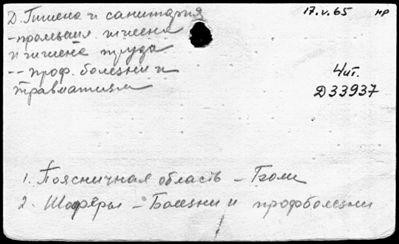 Д. Гигиена и санитария
17.V.65 нр
- промышл. гигиена
и гигиена труда
-- проф. болезни и
травматизм
4 ит.
Д33937
1. Поясничная область - Боли
2. Шоферы - Болезни и профболезни